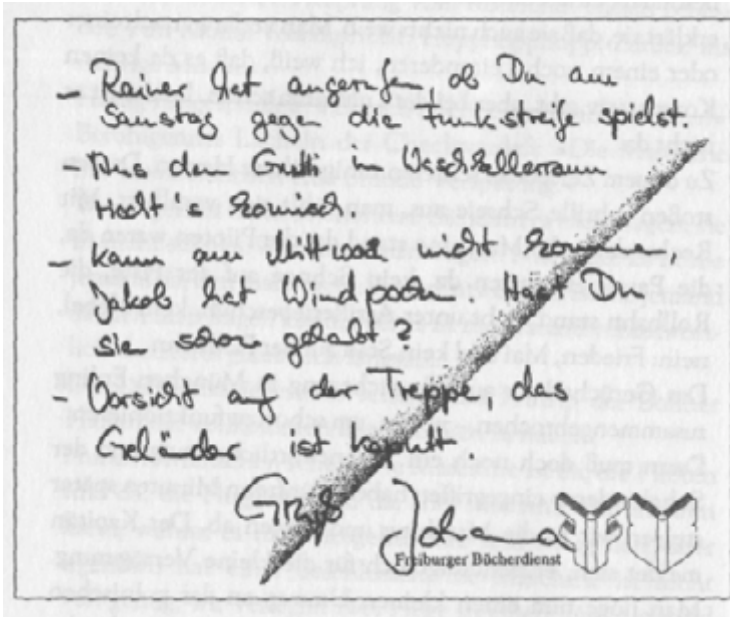 - Rainer hat angerufen, ob Du am
Samstag gegen die Funkstreife spielst.
- Aus dem Gulli im Kellerraum
riecht's komisch
- Kann am Mittwoch nicht kommen,
Jakob hat Windpocken. Hast Du
sie schon gehabt?
- Vorsicht auf der Treppe, das
Geländer ist kaputt.
Gruß
Freiburger Böcherdienst